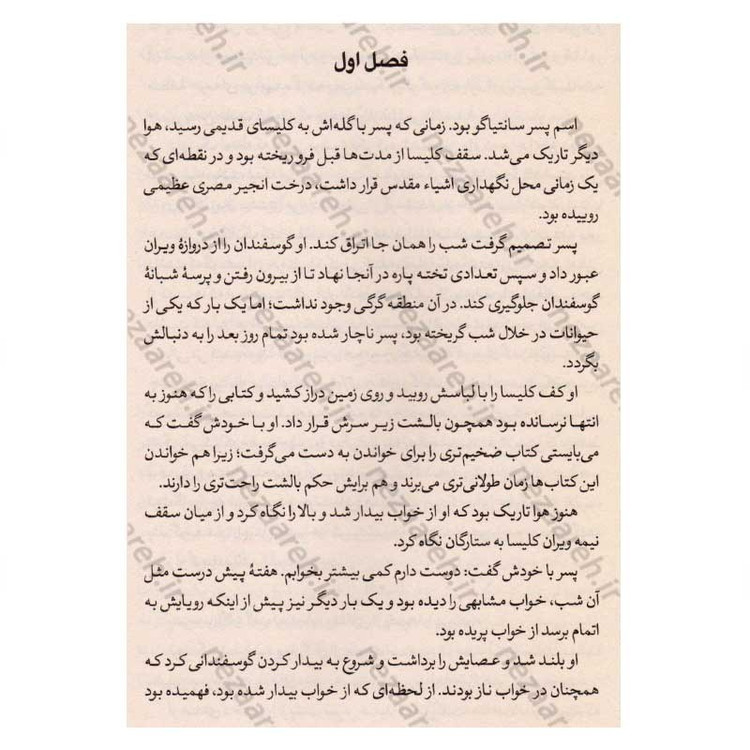 فصل اول
اسم پسر سانتیاگو بود. زمانی که پسر با گله‌اش به کلیسای قدیمی رسید، هوا
دیگر تاریک می‌شد. سقف کلیسا از مدت‌ها قبل فرو ریخته بود و در نقطه‌ای که
یک زمانی محل نگهداری اشیاء مقدس قرار داشت، درخت انجیر مصری عظیمی
روییده بود.
پسر تصمیم گرفت شب را همان جا اتراق کند. او گوسفندان را از دروازهٔ ویران
عبور داد و سپس تعدادی تخته پاره در آنجا نهاد تا از بیرون رفتن و پرسهٔ شبانهٔ
گوسفندان جلوگیری کند. در آن منطقه گرگی وجود نداشت؛ اما یک بار که یکی از
حیوانات در خلال شب گریخته بود، پسر ناچار شده بود تمام روز بعد را به دنبالش
بگردد.
او کف کلیسا را با لباسش روبید و روی زمین دراز کشید و کتابی را که هنوز به
انتها نرسانده بود همچون بالشت زیر سرش قرار داد. او با خودش گفت که
می‌بایستی کتاب ضخیم‌تری را برای خواندن به دست می‌گرفت؛ زیرا هم خواندن
این کتاب‌ها زمان طولانی‌تری می‌برند و هم برایش حکم بالشت راحت‌تری را دارند.
هنوز هوا تاریک بود که او از خواب بیدار شد و بالا را نگاه کرد و از میان سقف
نیمه ویران کلیسا به ستارگان نگاه کرد.
پسر با خودش گفت: دوست دارم کمی بیشتر بخوابم. هفتهٔ پیش درست مثل
آن شب، خواب مشابهی را دیده بود و یک بار دیگر نیز پیش از اینکه رویایش به
اتمام برسد از خواب پریده بود.
او بلند شد و عصایش را برداشت و شروع به بیدار کردن گوسفندانی کرد که
همچنان در خواب ناز بودند. از لحظه‌ای که از خواب بیدار شده بود، فهمیده بود
nezaareh.ir